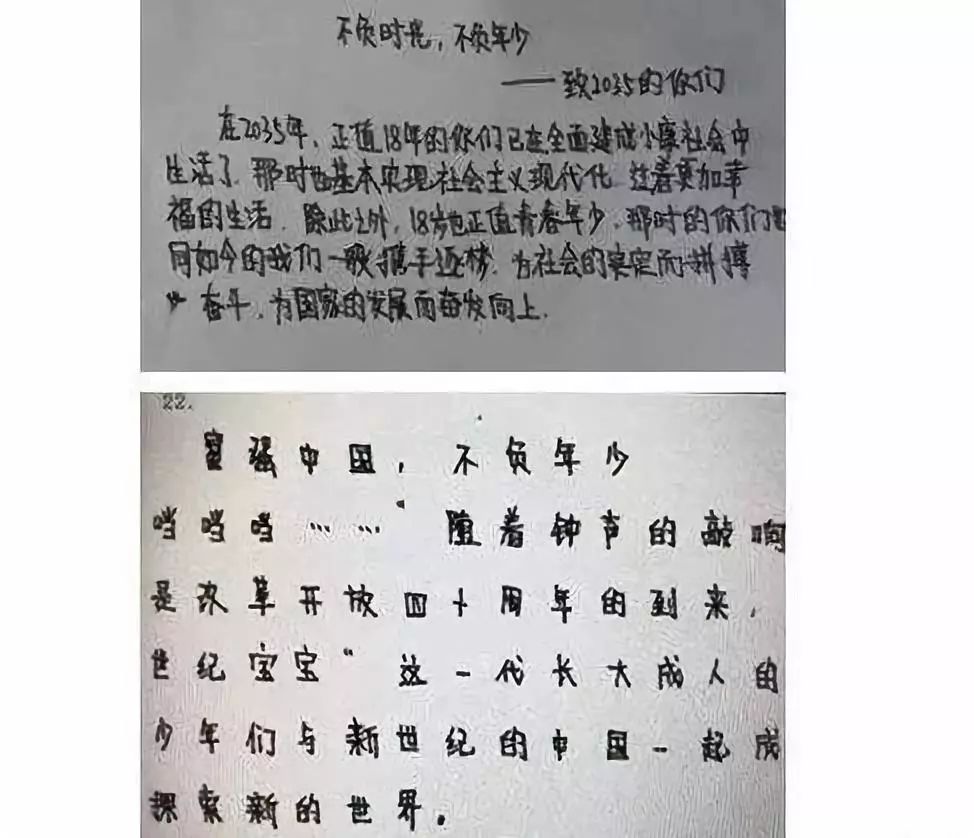 不负时光，不负年少
——致2035的你们
在2035年，正值18年的你们已在全面建成小康社会中
生活了，那时也基本实现社会主义现代化，过着更加幸
福的生活．除此之外，18岁也正值青春年少，那时的你们
同如今的我们一般携手逐梦，为社会的安定而拼搏
奋斗，为国家的发展而奋发向上．
22.
富强中国，不负年少
当当当……" 随着钟声的敲响
是改革开放四十周年的到来，
世纪宝宝" 这一代长大成人的
少年们与新世纪的中国一起成
探索新的世界。